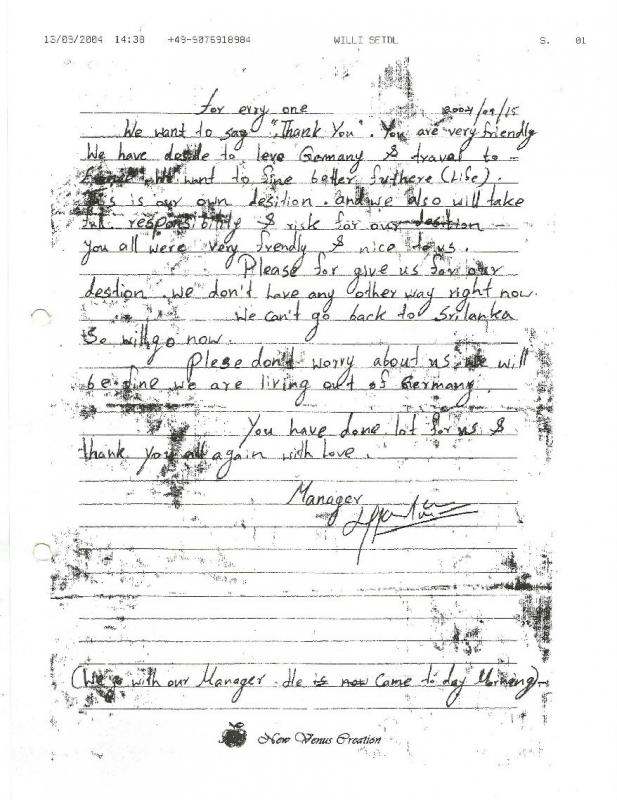 13/09/2004 14:38 +49-9076918984 WILLI SEIDL S. 01
for evry one 2004/09/15
We want to say "Thank You". You are very friendly
We have deside to leve Germany & travel to -
want to fine better futhere (Life).
This is our own desition. and we also will take
full responsibility & risk for our desition
you all were very frendly & nice to us.
Please for give us for our
desition. we don't have any other way right now.
We can't go back to Srilanka
So will go now.
Please don't worry about us. we will
be fine we are living out of Germany.
You have done lot for us &
thank you all again with love.
Manager
(We go with our Manager. He is now came to day Morning)
New Venus Creation